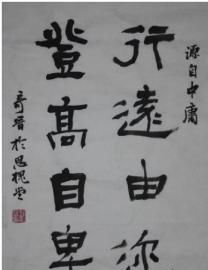 源自中庸
行遠由迩
登高自卑
奇晉於思槐堂